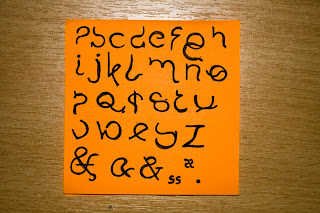 a b c d e f g h
i j k l m n ñ o
p q r s t u
v w x y z
& & & ss zz .